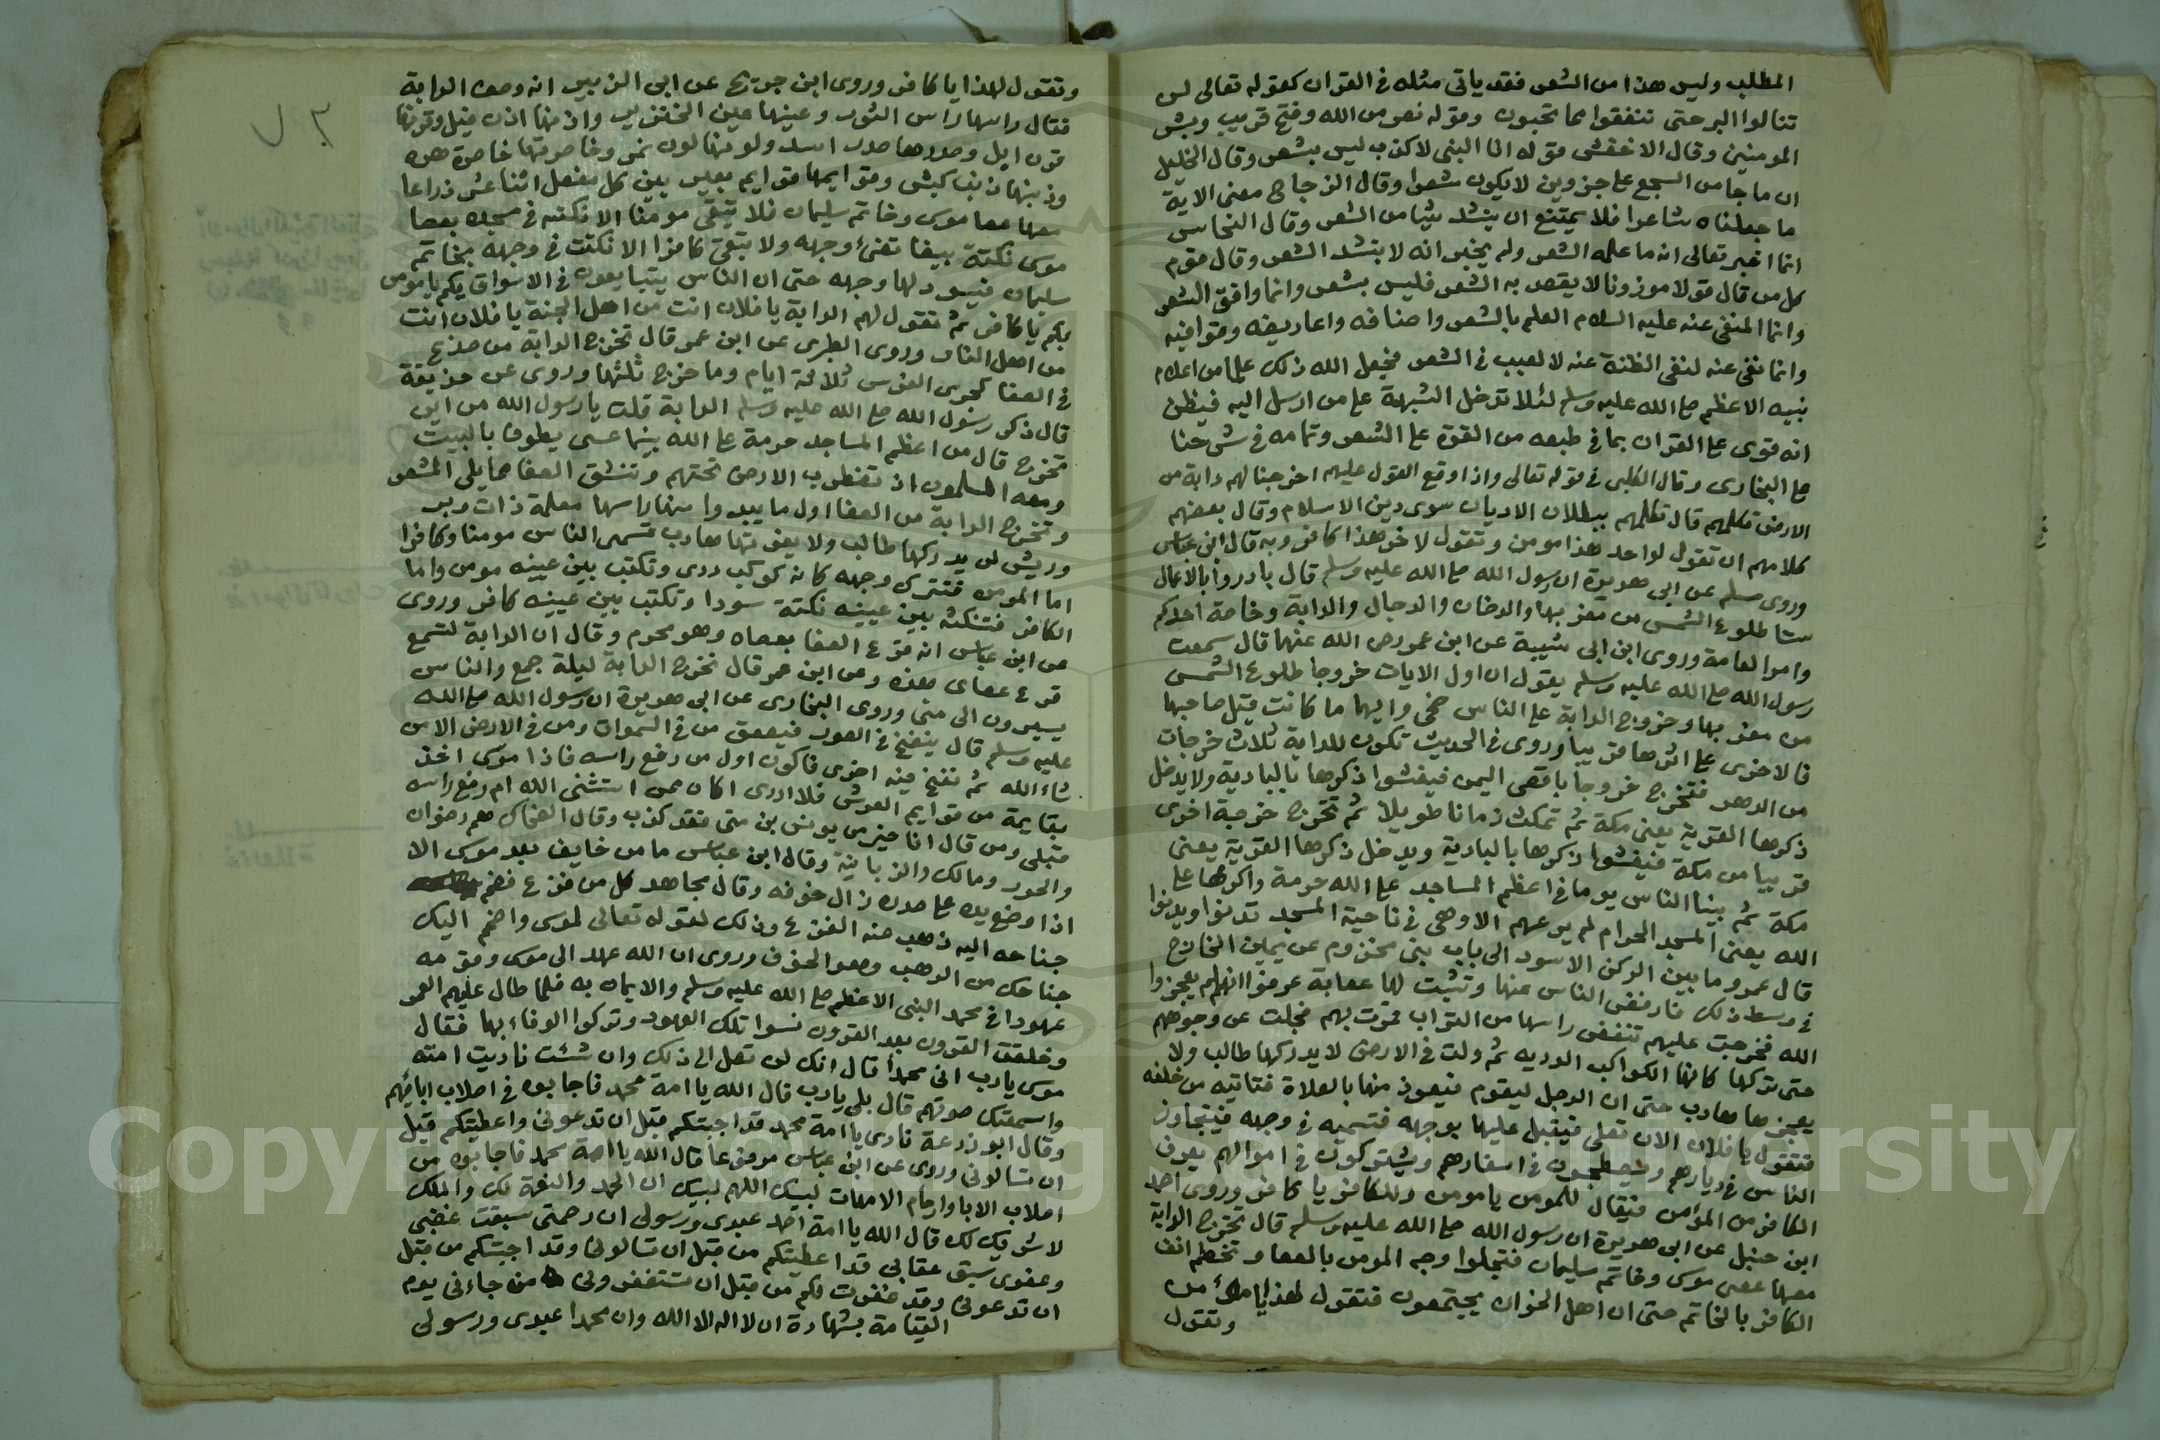 المطلب وليس هذا من الشعر فقد ياتي مثله في القران كقوله تعالى لن
تنالوا البر حتى تنفقوا مما تحبون وقوله نصر من الله وفتح قريب وبشر
المومنين وقال الاخفش قوله انا النبي لا كذب ليس بشعر وقال الخليل
ان ما جا من السجع على جزوين لا يكون شعرا وقال الزجاج معنى الاية
ما جعلناه شاعرا فلا يمتنع ان ينشد شيا من الشعر وقال النحاس
انما اخبر تعالى انه ما علمه الشعر ولم يخبر انه لا ينشد الشعر وقال قوم
كل من قال قولا موزونا لا يقصد به الشعر فليس بشعر وانما وافق الشعر
وانما المنفي عنه عليه السلام العلم بالشعر واصنافه واعاريضه وقوافيه
وانما نفى عنه لنفي الظنة عنه لا لعيب في الشعر فجعل الله ذلك علما من اعلام
نبيه الاعظم صلى الله عليه وسلم لئلا تدخل الشبهة على من ارسل اليه فيظن
انه قوى على القران بما في طبعه من القوة على الشعر وتمامه في شرحنا
على البخاري وقال الكلبي في قوله تعالى واذا وقع القول عليهم اخرجنا لهم دابة من
الارض تكلمهم قال تكلمهم ببطلان الاديان سوى دين الاسلام وقال بعضهم
كلامهم ان تقول لواحد هذا مومن وتقول لاخر هذا كافر وبه قال ابن عباس
وروى مسلم عن ابي هريرة ان رسول الله صلى الله عليه وسلم قال بادروا بالاعمال
ستا طلوع الشمس من مغربها والدخان والدجال والدابة وخاصة احدكم
وامر العامة وروى ابن ابي شيبة عن ابن عمر رضى الله عنهما قال سمعت
رسول الله صلى الله عليه وسلم يقول ان اول الايات خروجا طلوع الشمس
من مغربها وخروج الدابة على الناس ضحى وايهما ما كانت قبل صاحبها
فالاخرى على اثرها قريبا وروى في الحديث تكون للدابة ثلاث خرجات
من الدهر فتخرج خروجا باقصى اليمن فيفشوا ذكرها بالبادية ولا يدخل
ذكرها القرية يعنى مكة ثم تمكث زمانا طويلا ثم تخرج خرجة اخرى
قريبا من مكة فيفشوا ذكرها بالبادية ويدخل ذكرها القرية يعنى
مكة ثم بينا الناس يوما في اعظم المساجد على الله حرمة واكرمها على
الله يعنى المسجد الحرام لم يرعهم الا وهى في ناحية المسجد تدنوا ويدنوا
قال عمرو ما بين الركن الاسود الى باب بنى مخزوم عن يمين الخارج
في وسط ذلك فارفض الناس عنها وتثبت لها عصابة عرفوا انهم لم يعجزوا
الله فخرجت عليهم تنفض راسها من التراب فمرت بهم فجلت عن وجوههم
حتى تركها كانها الكواكب الدريه ثم ولت في الارض لا يدركها طالب ولا
يعجزها هارب حتى ان الرجل ليقوم فيعوذ منها بالصلاة فتاتيه من خلفه
فتقول يا فلان الان تصلى فيقبل عليها بوجهه فتسميه في وجهه فيتجاور
الناس في ديارهم ويصطحبون في اسفارهم ويشتركون في اموالهم يعرف
الكافر من المؤمن فيقال للمومن يا مومن وللكافر يا كافر وروى احمد
ابن حنبل عن ابي هريرة ان رسول الله صلى الله عليه وسلم قال تخرج الدابة
معها عصى موسى وخاتم سليمان فتجلوا وجه المومن بالعصا وتخطم انف
الكافر بالخاتم حتى ان اهل الخوان يجتمعون فتقول لهذا يا مؤمن
وتقول
وتقول لهذا يا كافر وروى ابن جريج عن ابي الزبير انه وصف الدابة
فقال راسها راس الثور وعينها عين الخنزير واذنها اذن فيل وقرنها
قرن ايل وصدرها صدر اسد ولونها لون نمر وخاصرتها خاصرة هره
وذنبها ذنب كبش وقوايمها قوايم بعير بين كل مفصل اثنا عشر ذراعا
معها عصا موسى وخاتم سليمان فلا يبقى مومنا الا نكتته في مسجده بعصا
موسى نكتة بيضا تضئ وجهه ولا تبقى كافرا الا نكتت في وجهه بخاتم
سليمان فيسود لها وجهه حتى ان الناس يتبايعون في الاسواق بكم يا مومن
بكم يا كافر ثم تقول لهم الدابة يا فلان انت من اهل الجنة يا فلان انت
من اهل النار وروى الطبرى عن ابن عمر قال تخرج الدابة من صدع
في الصفا كجرى الفرس ثلاثة ايام وما خرج ثلثها وروى عن حذيفة
قال ذكر رسول الله صلى الله عليه وسلم الدابة قلت يا رسول الله من اين
تخرج قال من اعظم المساجد حرمة على الله بينما عيسى يطوف بالبيت
ومعه المسلمون اذ تضطرب الارض تحتهم وتنشق الصفا مما يلى المشعر
وتخرج الدابة من الصفا اول ما يبدوا منها راسها معلمة ذات وبر
وريش لن يدركها طالب ولا يفوتها هارب تسمى الناس مومنا وكافرا
اما المومن فتترك وجهه كانه كوكب درى وتكتب بين عينيه مومن واما
الكافر فتنكته بين عينيه نكتة سودا وتكتب بين عينيه كافر وروى
عن ابن عباس انه قرع الصفا بعصاه وهو محرم وقال ان الدابة لتسمع
قرع عصاى هذه وعن ابن عمر قال تخرج الدابة ليلة جمع والناس
يسيرون الى منى وروى البخارى عن ابي هريرة ان رسول الله صلى الله
عليه وسلم قال ينفخ في الصور فيصعق من في السموات ومن في الارض الا من
شاء الله ثم تنفخ فيه اخرى فاكون اول من رفع راسه فاذا موسى اخذ
بقايمة من قوايم العرش فلا ادرى اكان ممن استثنى الله ام رفع راسه
قبلى ومن قال انا خير من يونس بن متى فقد كذب وقال الضحاك هم رضوان
والحور ومالك والزبانية وقال ابن عباس ما من خايف بعد موسى الا
اذا وضع يده على صدره زال خوفه وقال مجاهد كل من فزع فضم
جناحه اليه ذهب عنه الفزع وذلك لقوله تعالى لموسى واضمم اليك
جناحك من الرهب وهو الخوف وروى ان الله عهد الى موسى وقومه
عهودا في محمد النبى الاعظم صلى الله عليه وسلم والايمان به فلما طال عليهم العمر
وخلقت القرون بعد القرون نسوا تلك العهود وتركوا الوفاء بها فقال
موسى يا رب انى محمدا قال انك لن تصل الى ذلك وان شئت ناديت امته
واسمعتك صوتهم قال بلى يا رب قال الله يا امة محمد فاجابوه في اصلاب ابائهم
وقال ابو زرعة نادى يا امة محمد قد اجبتكم قبل ان تدعونى واعطيتكم قبل
ان تسالونى وروى عن ابن عباس مرفوعا قال الله يا امة محمد فاجابوه من
اصلاب الابا وارحام الامهات لبيك اللهم لبيك ان الحمد والنعمة لك والملك
لا شريك لك قال الله يا امة احمد عبدى ورسولى ان رحمتى سبقت غضبى
وعفوى سبق عقابى قد اعطيتكم من قبل ان تسالونى وقد اجبتكم من قبل
ان تدعونى وقد غفرت لكم من قبل ان تستغفرونى من جاءنى يوم
القيامة بشهادة ان لا اله الا الله وان محمدا عبدى ورسولى